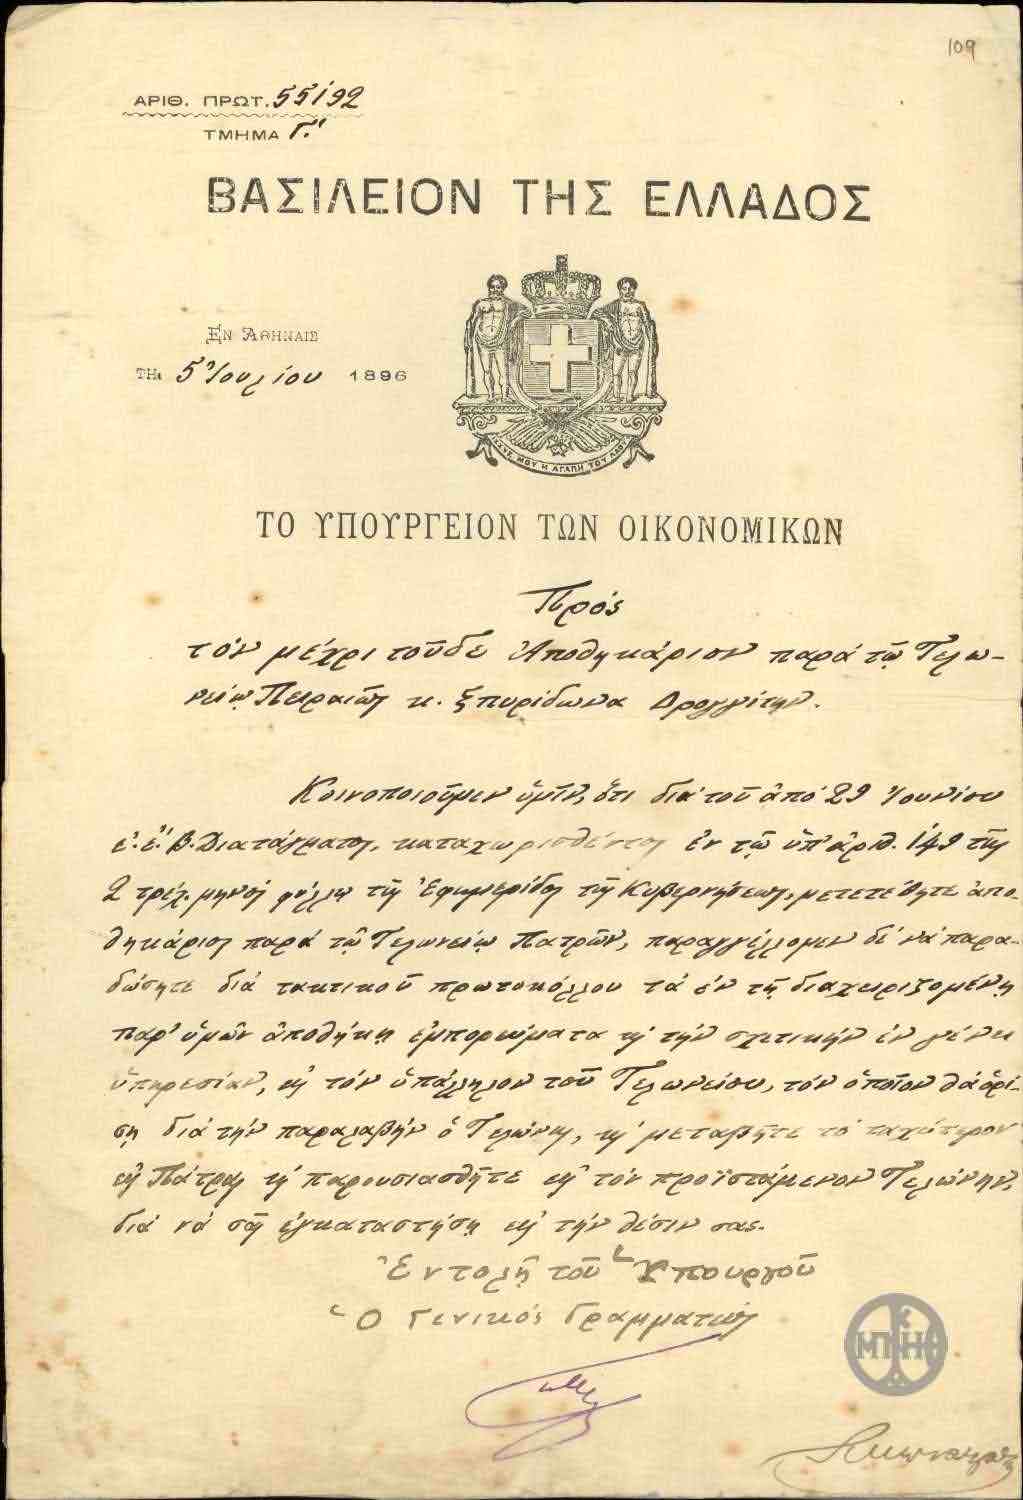 109
ΑΡΙΘ. ΠΡΩΤ. 55192
ΤΜΗΜΑ Γ.'
ΒΑΣΙΛΕΙΟΝ ΤΗΣ ΕΛΛΑΔΟΣ
ΕΝ ΑΘΗΝΑΙΣ
ΤΗι 5 Ἰουλίου 1896
ΙΣΧΥΣ ΜΟΥ Η ΑΓΑΠΗ ΤΟΥ ΛΑΟΥ
ΤΟ ΥΠΟΥΡΓΕΙΟΝ ΤΩΝ ΟΙΚΟΝΟΜΙΚΩΝ
Πρός
τόν μέχρι τοῦδε Ἀποθηκάριον παρά τῷ Τελω-
νείῳ Πειραιῶς κ. Σπυρίδωνα Δρογγίτην.
Κοινοποιοῦμεν ὑμῖν, ὅτι διά τοῦ ἀπό 29 Ἰουνίου
ἐ. ἔ. Β. Διατάγματος, καταχωρισθέντος ἐν τῷ ὑπ' ἀριθ. 149 τῆς
2 τρέχ. μηνός φύλλῳ τῆς Ἐφημερίδος τῆς Κυβερνήσεως, μετετέθητε ἀπο-
θηκάριος παρά τῷ Τελωνείῳ Πατρῶν, παραγγέλλομεν δέ νά παρα-
δώσητε διά τακτικοῦ πρωτοκόλλου τά ἐν τῇ διαχειριζομένῃ
παρ' ὑμῶν ἀποθήκῃ ἐμπορεύματα καί τήν σχετικήν ἐν γένει
ὑπηρεσίαν, εἰς τόν ὑπάλληλον τοῦ Τελωνείου, τόν ὁποῖον θά ὁρί-
σῃ διά τήν παραλαβήν ὁ Τελώνης, καί μεταβῆτε τό ταχύτερον
εἰς Πάτρας καί παρουσιασθῆτε εἰς τόν προϊστάμενον Τελώνην,
διά νά σᾶς ἐγκαταστήσῃ εἰς τήν θέσιν σας.
Ἐντολῇ τοῦ Ὑπουργοῦ
Ὁ Γενικός Γραμματεύς